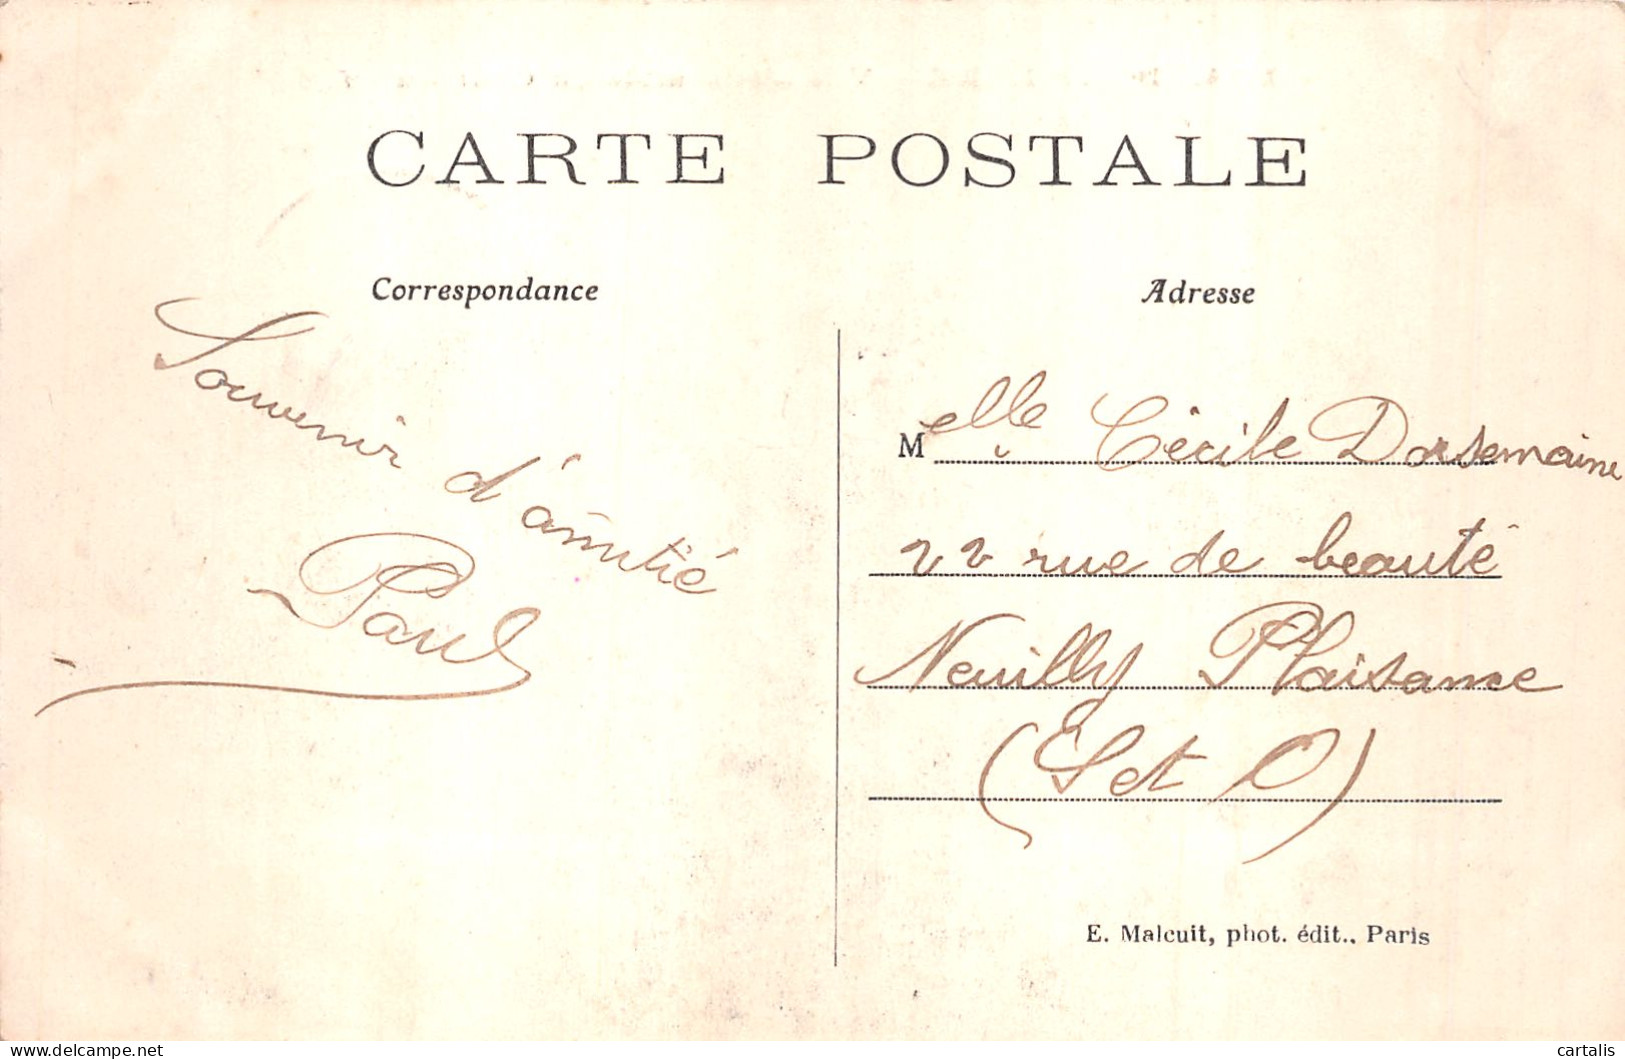 CARTE POSTALE
Correspondance
Souvenir d'amitié
Paul
Adresse
Melle Cécile Dorsemaine
22 rue de beauté
Neuilly Plaisance
(S et O)
E. Malcuit, phot. édit., Paris
www.delcampe.net
cartalis